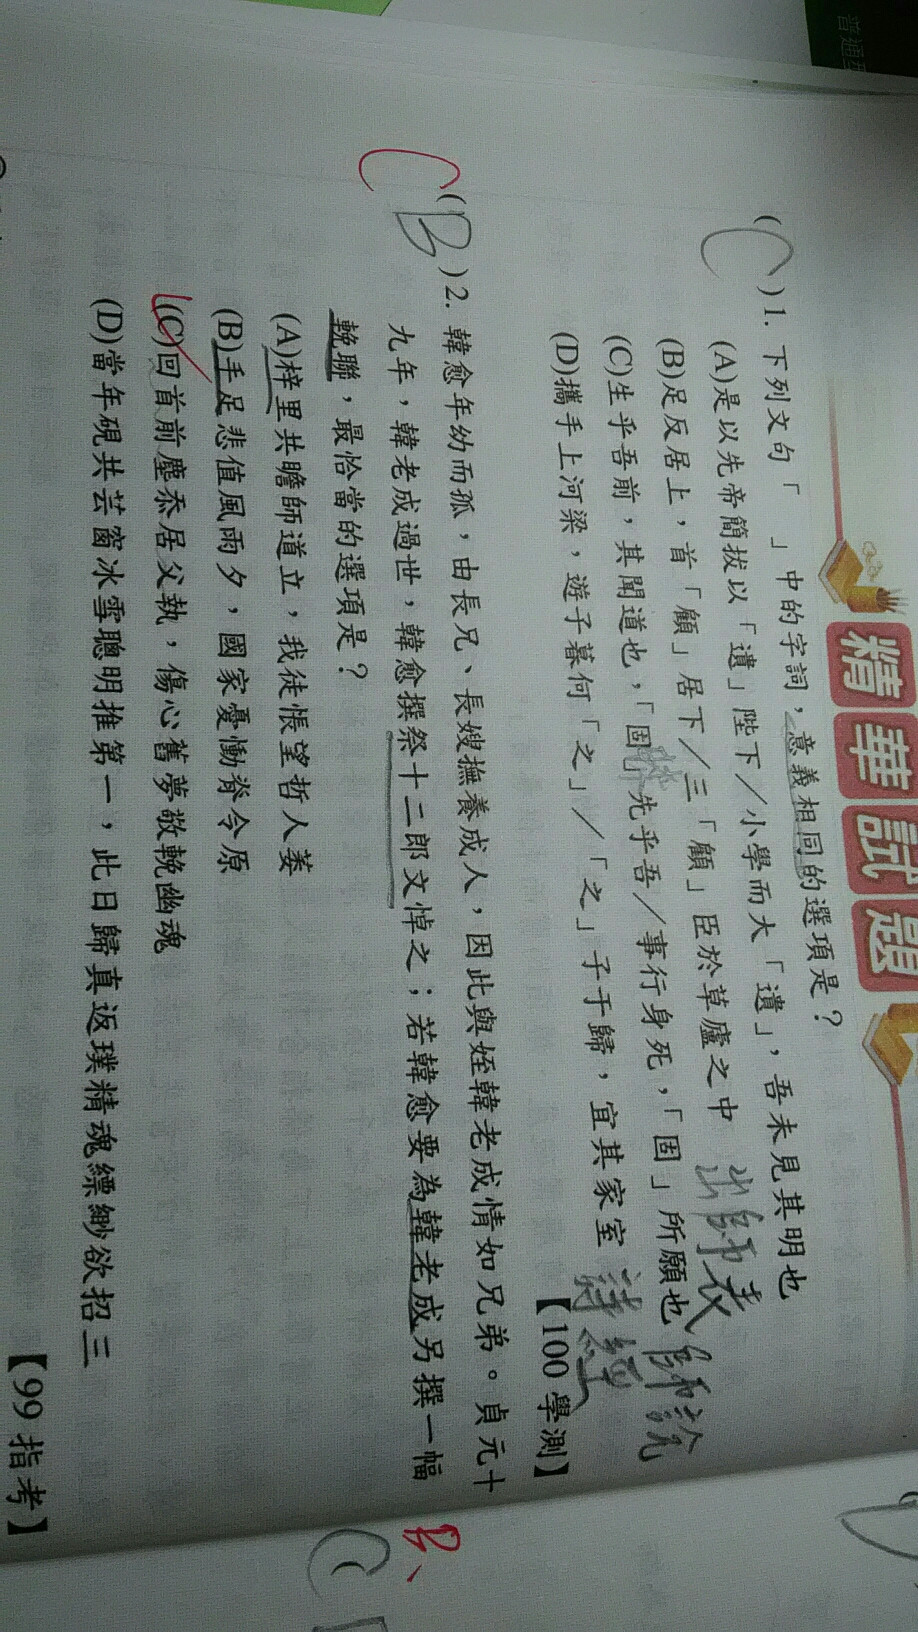 普通型
精華試題
(C)1. 下列文句「　」中的字詞，意義相同的選項是？
(A)是以先帝簡拔以「遺」陛下／小學而大「遺」，吾未見其明也
(B)足反居上，首「顧」居下／三「顧」臣於草廬之中 出師表
(C)生乎吾前，其聞道也，「固」先乎吾／事行身死，「固」所願也 師說
(D)攜手上河梁，遊子暮何「之」／「之」子于歸，宜其家室 詩經
【100 學測】
C
(B)2. 韓愈年幼而孤，由長兄、長嫂撫養成人，因此與姪韓老成情如兄弟。貞元十
九年，韓老成過世，韓愈撰祭十二郎文悼之；若韓愈要為韓老成另撰一幅
輓聯，最恰當的選項是？
(A)梓里共瞻師道立，我徒悵望哲人萎
(B)手足悲值風雨夕，國家憂慟脊令原
(C)回首前塵忝居父執，傷心舊夢敬輓幽魂
(D)當年硯共芸窗冰雪聰明推第一，此日歸真返璞精魂縹緲欲招三
【99 指考】
B、
C